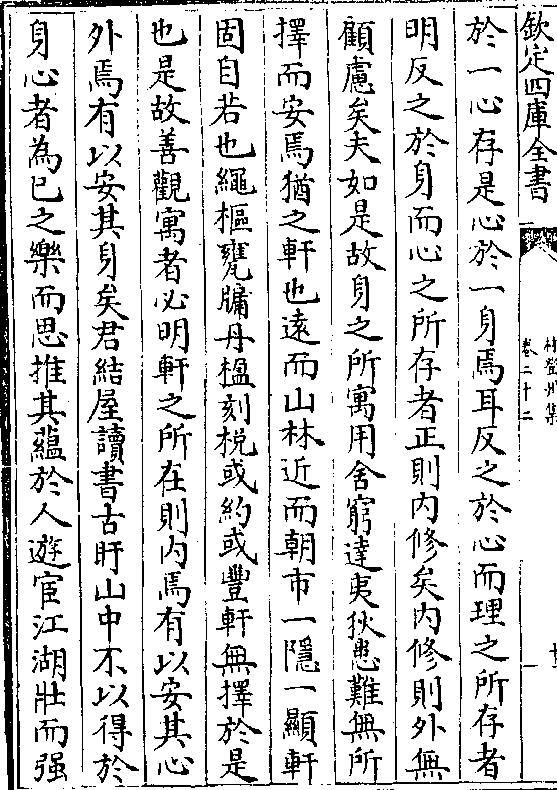 欽定四庫全書
林登州集
卷二十二
於一心存是心於一身焉耳反之於心而理之所存者
明反之於身而心之所存者正則内修矣内修則外無
顧慮矣夫如是故身之所寓用舍窮達夷狄患難無所
擇而安焉猶之軒也遠而山林近而朝市一隱一顯軒
固自若也繩樞甕牖丹楹刻桷或約或豐軒無擇於是
也是故善觀寓者必明軒之所在則内焉有以安其心
外焉有以安其身矣君結屋讀書古盱山中不以得於
身心者為已之樂而思推其藴於人遊宦江湖壯而强